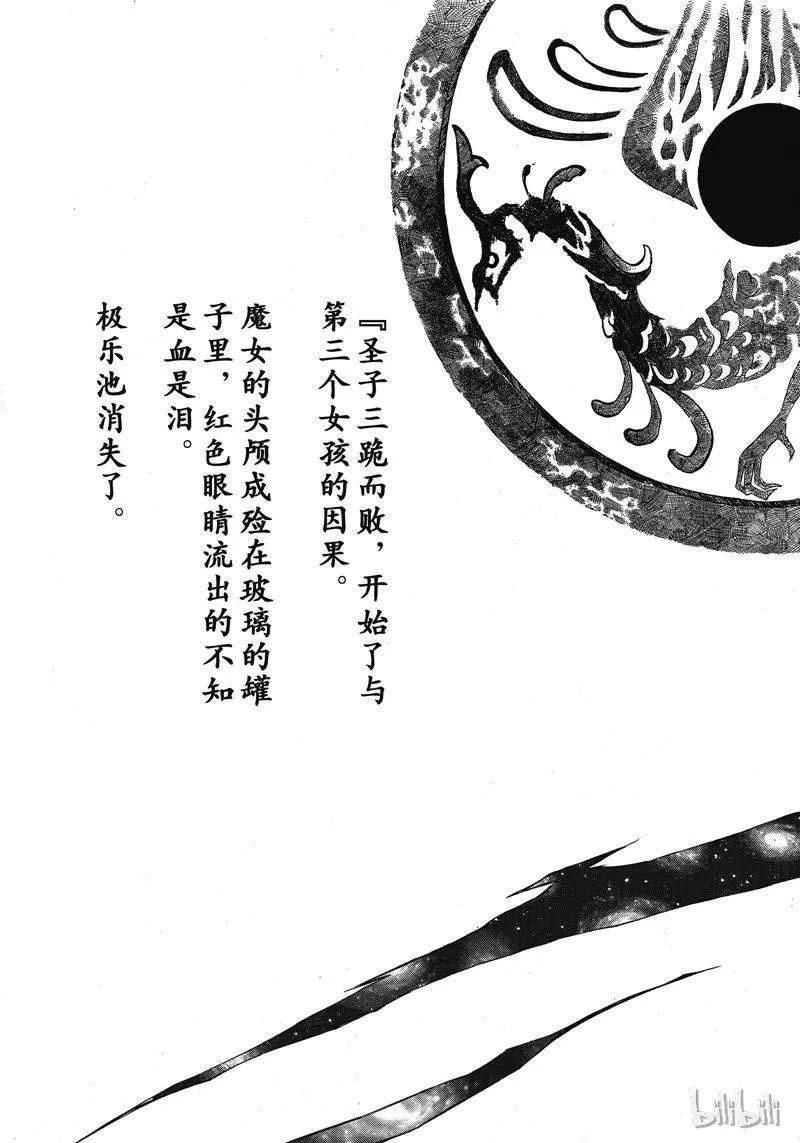 『圣子三跪而败，开始了与
第三个女孩的因果。
魔女的头颅成殓在玻璃的罐
子里，红色眼睛流出的不知
是血是泪。
极乐池消失了。
bilibili